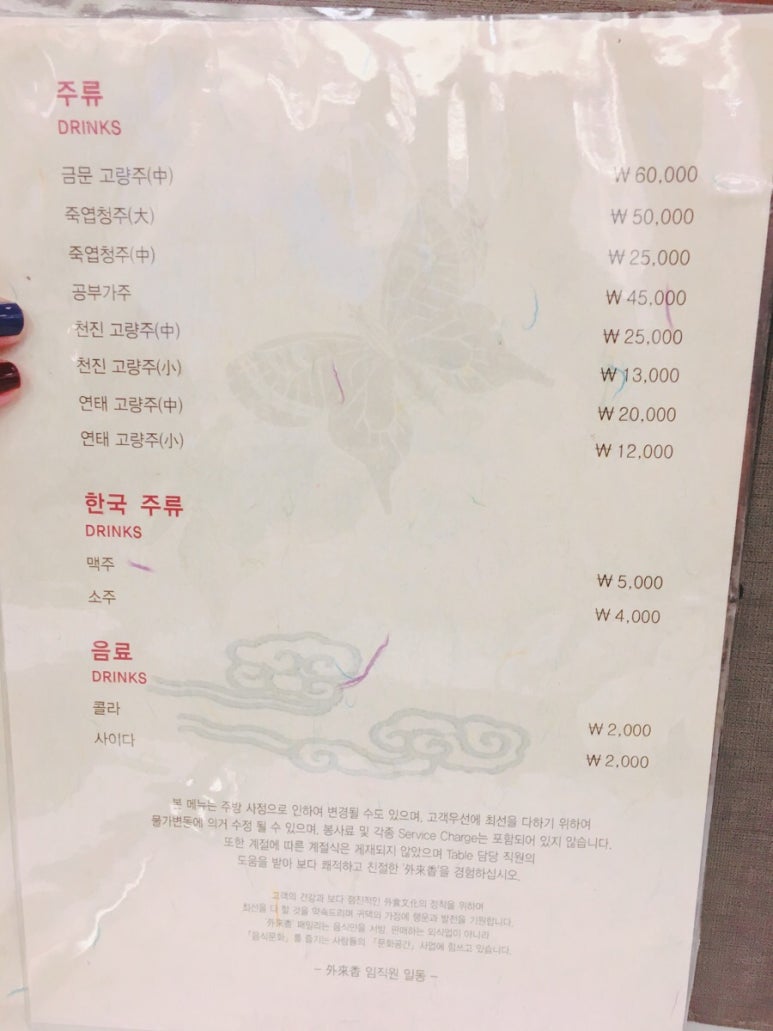 주류
DRINKS
금문 고량주(中) ₩ 60,000
죽엽청주(大) ₩ 50,000
죽엽청주(中) ₩ 25,000
공부가주 ₩ 45,000
천진 고량주(中) ₩ 25,000
천진 고량주(小) ₩ 13,000
연태 고량주(中) ₩ 20,000
연태 고량주(小) ₩ 12,000
한국 주류
DRINKS
맥주 ₩ 5,000
소주 ₩ 4,000
음료
DRINKS
콜라 ₩ 2,000
사이다 ₩ 2,000
본 메뉴는 주방 사정으로 인하여 변경될 수도 있으며, 고객우선에 최선을 다하기 위하여
물가변동에 의거 수정 될 수 있으며, 봉사료 및 각종 Service Charge는 포함되어 있지 않습니다.
또한 계절에 따른 계절식은 게재되지 않았으며 Table 담당 직원의
도움을 받아 보다 쾌적하고 친절한 '外來香'을 경험하십시오.
고객의 건강과 보다 점진적인 外食文化의 정착을 위하여
최선을 다 할 것을 약속드리며 귀댁의 가정에 행운과 발전을 기원합니다.
'外來香' 패밀리는 음식만을 서빙, 판매하는 외식업이 아니라
「음식문화」를 즐기는 사람들의 「문화공간」 사업에 힘쓰고 있습니다.
- 外來香 임직원 일동 -